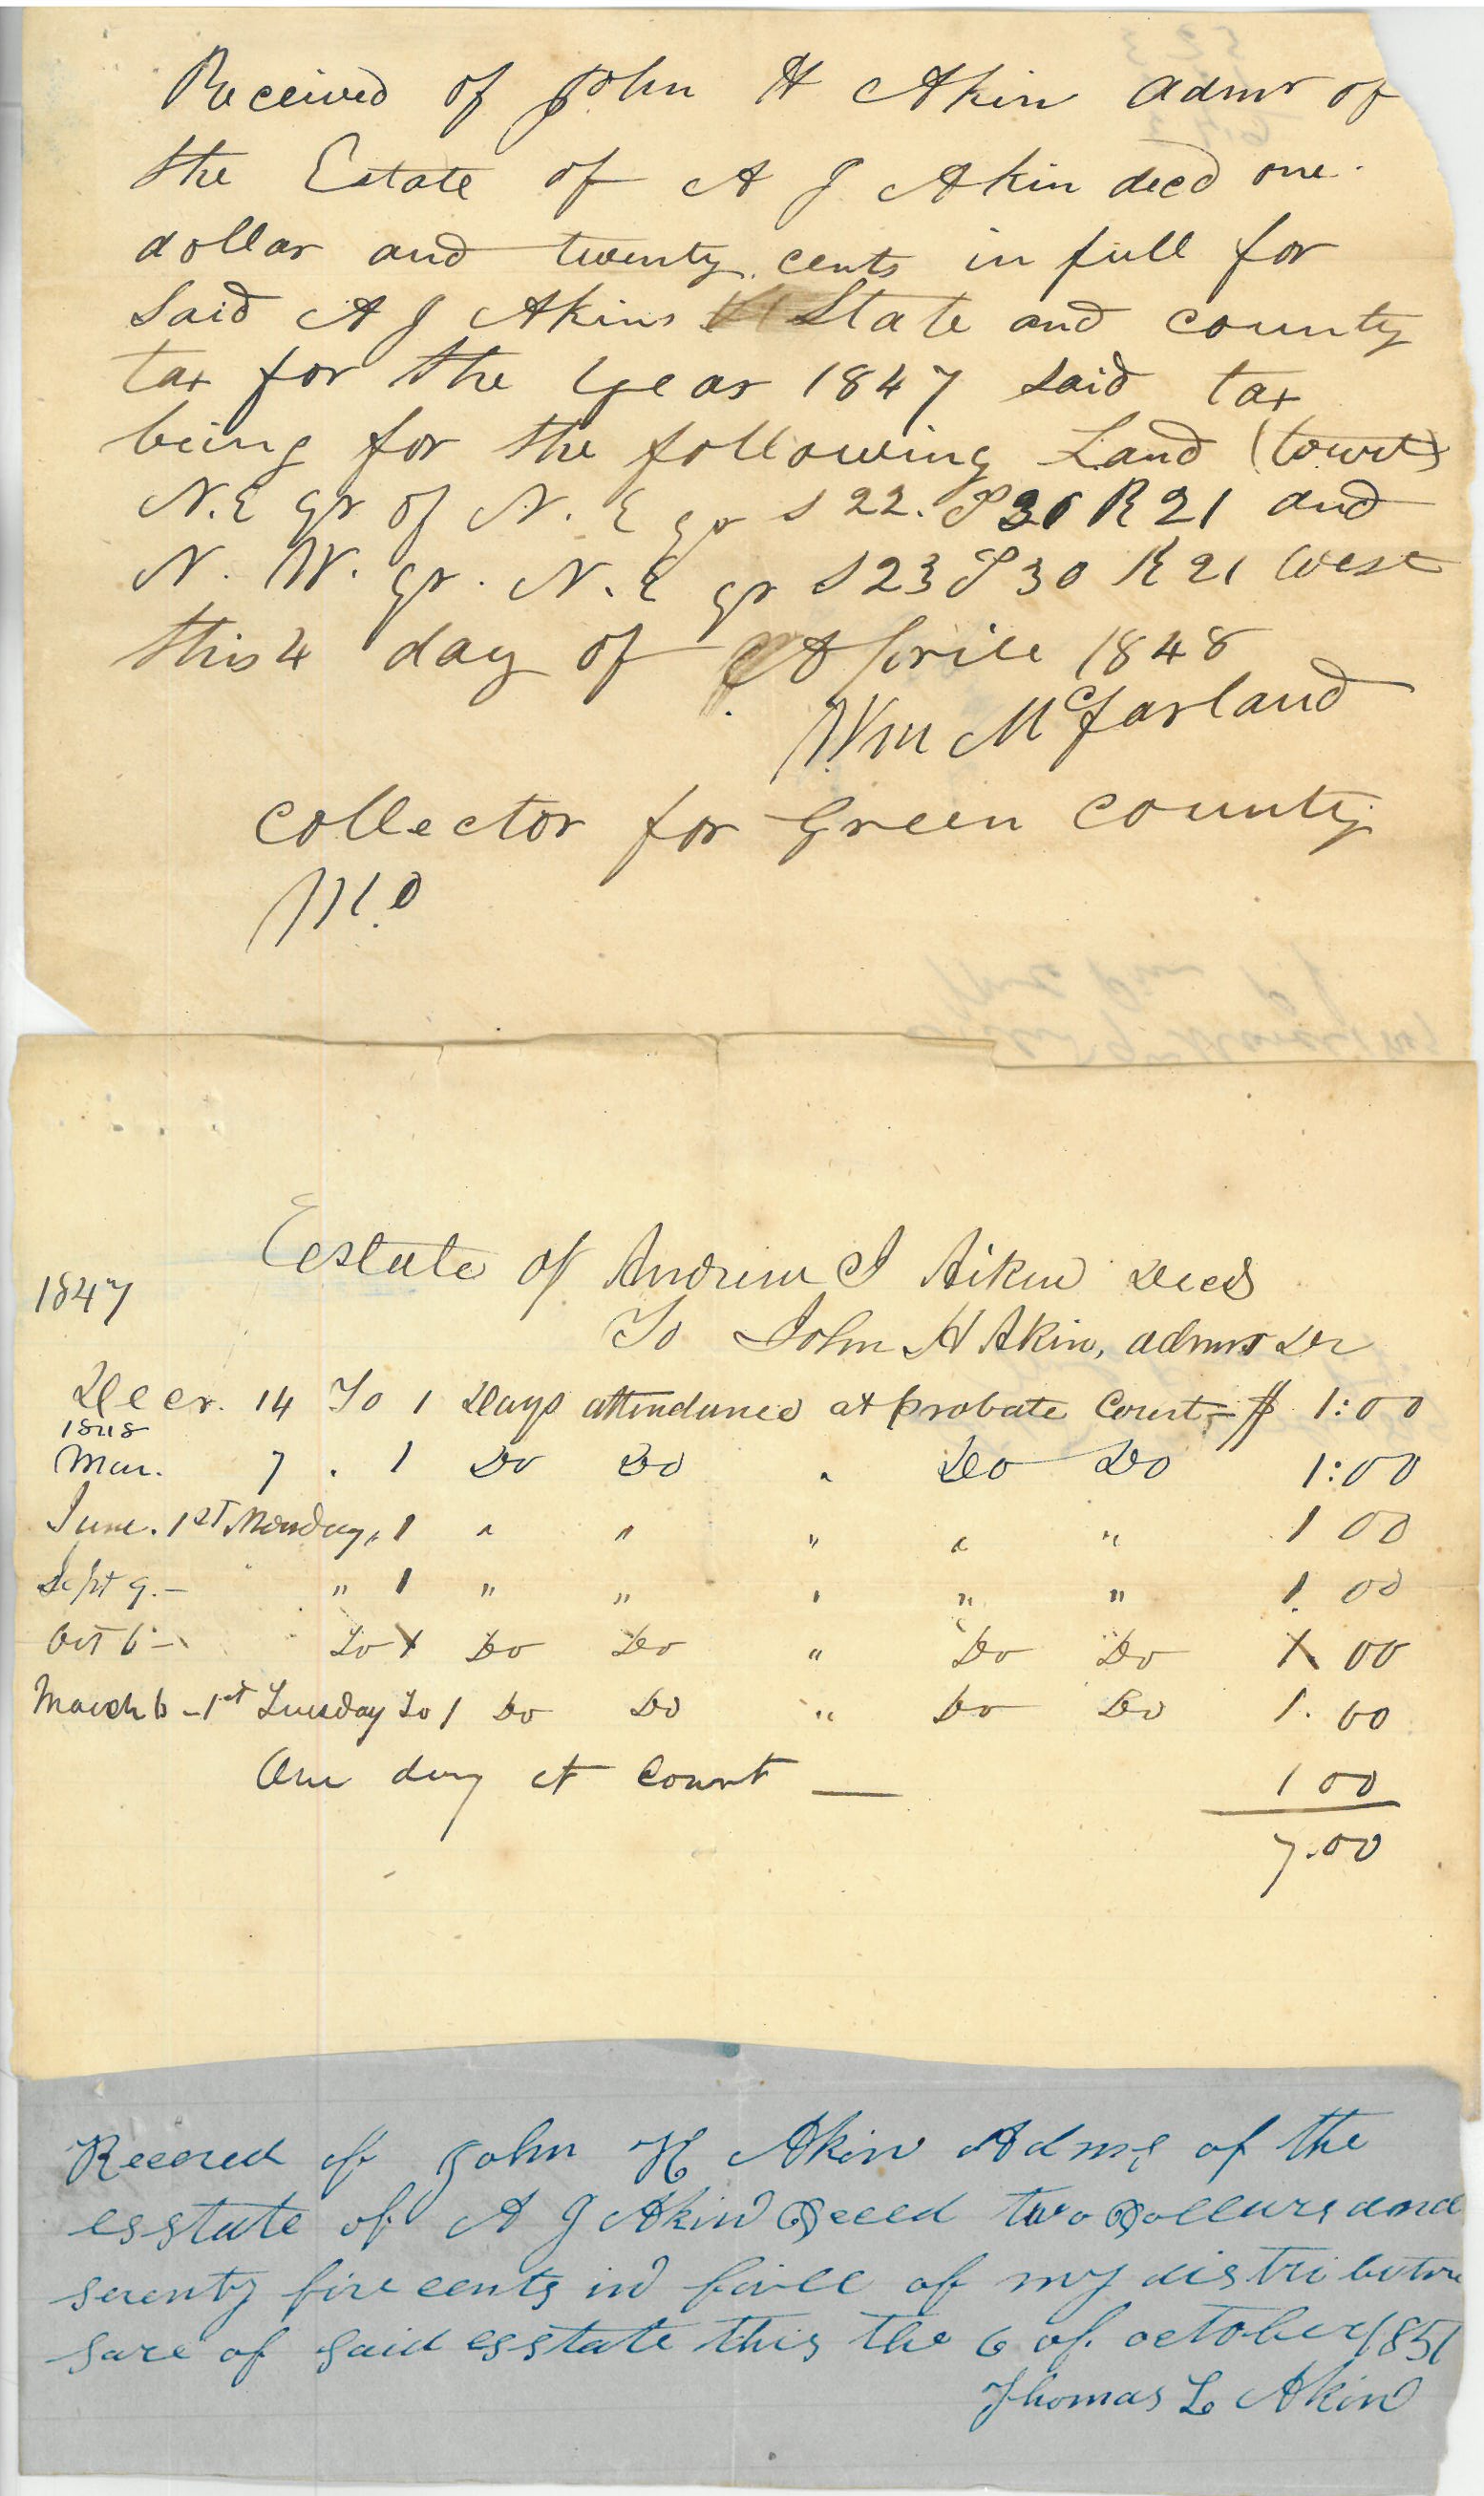 Received of John H Akin admr of
the Estate of A J Akin decd one
dollar and twenty cents in full for
said A J Akins State and county
tax for the year 1847 said tax
being for the following Land (towit)
N.E qr of N. E qr S 22. T 30 R 21 and
N. W. qr. N. E qr S 23 T 30 R 21 west
this 4 day of Aprile 1848
Wm McFarland
collector for Green county
Mo
Eestate of Andrew J Aiken Decd
1847
To John H Akin, admr Dr
Decr. 14 To 1 Days attendance at probate Court - $ 1:00
1848
Mar. 7 . 1 Do Do " Do Do 1:00
June. 1st Monday, 1 " " " " " 1 00
Sept 9. - " 1 " " " " " 1. 00
Oct 6 - To 1 Do Do " Do Do 1 00
March 6 - 1st Tuesday To 1 Do Do " Do Do 1. 00
One day at Court — 1 00
7.00
Receved of John H Akin Adms of the
esstate of A J Akin Deced two Dollars and
seventy five cents in full of my distributive
sare of said esstate this the 6 of october 1851
Thomas L Akin